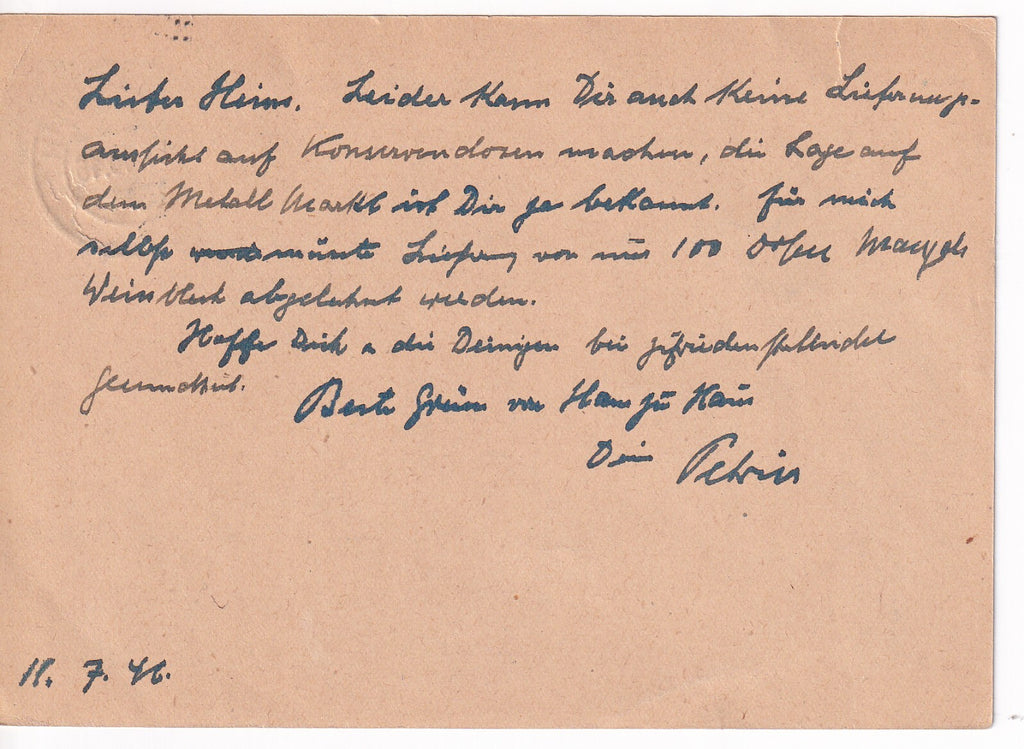 Lieber Heinz. Leider kann Dir auch keine Lieferungs-
aussicht auf Konservendosen machen, die Lage auf
dem Metall Markt ist Dir ja bekannt. Für mich
selbst musste Liefrung von nur 100 Dosen mangels
Weissblech abgelehnt werden.
Hoffe Dich u die Deinigen bei zufriedenstellender
Gesundheit.
Beste Grüsse von Haus zu Haus
Dein
18. 7. 46.